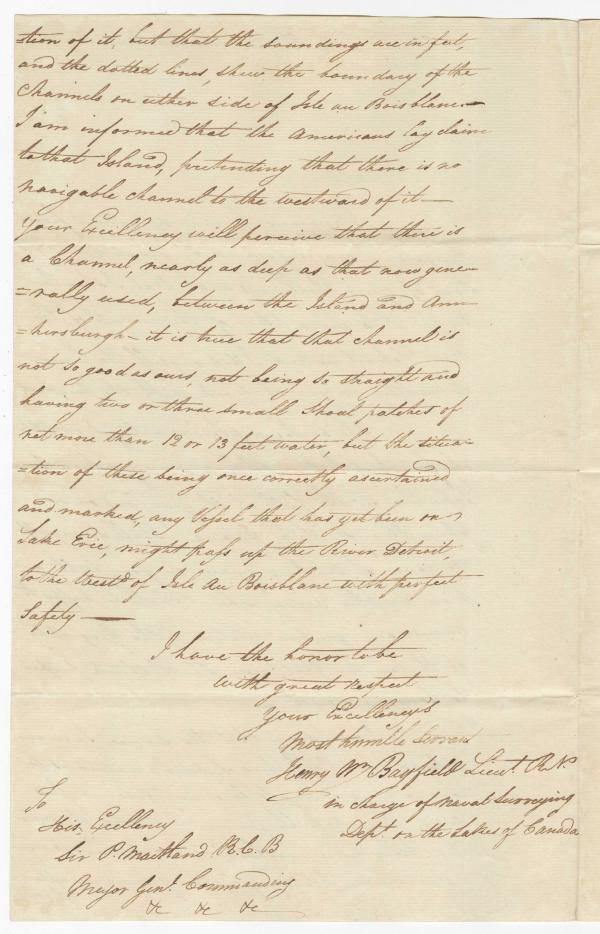 =tion of it, but that the soundings are in feet,
and the dotted lines, shew the boundary of the
Channels on either side of Isle au Boisblanc—
I am informed that the Americans lay claim
to that Island, pretending that there is no
navigable channel to the westward of it—
Your Excellency will perceive that there is
a Channel, nearly as deep as that now gene-
=rally used, between the Island and Am-
=hersburgh— it is true that that channel is
not so good as ours, not being so straight and
having two or three small Shoal patches of
not more than 12 or 13 feet water, but the situa-
=tion of these being once correctly ascertained
and marked, any Vessel that has yet been on
Lake Erie, might pass up the River Detroit
to the Westd of Isle Au Boisblanc with perfect
Safety—
I have the honor to be
with great respect
Your Excellency's
Most humble Servant
Henry Wm Bayfield Lieut. R.N.
in charge of Naval Surveying
Dept. on the Lakes of Canada
To
His Excellency
Sir P. Maitland K.C.B
Major Genl. Commanding
&c &c &c